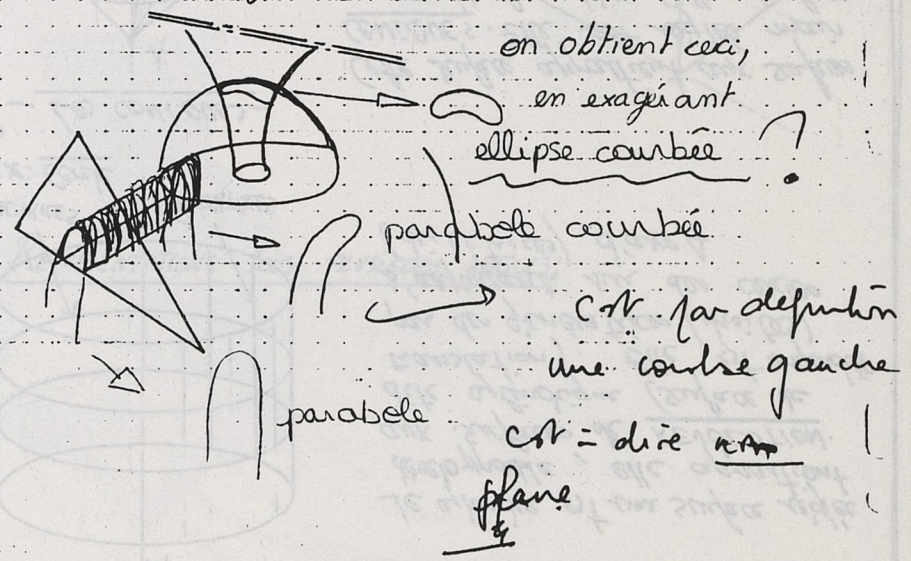 on obtient ceci,
en exagérant
ellipse courbée ?
parabole courbée
C'est par définition
une courbe gauche
parabole
c'est = dire non
plane